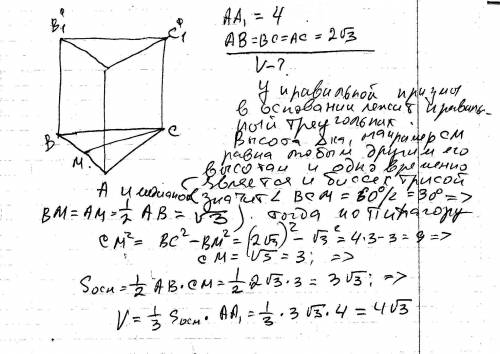 B₁
C₁
AA₁ = 4
AB=BC=AC=2√3
V-?
У правильной призмы
в основании лежит правиль-
ный треугольник.
Высота Δка, например CM
равна любым другим его
высотам и одновременно
B
C
M
A
и медианой является и биссектрисой
BM=AM=½ AB=√3
значит ∠ BCM = 60°/2=30° =>
тогда по Пифагору
CM²= BC²-BM²=(2√3)²-√3²=4·3-3=9 =>
CM=√9=3; =>
Sосн=½ AB·CM=½·2√3·3=3√3; =>
V=⅓ Sосн·AA₁=⅓·3√3·4=4√3